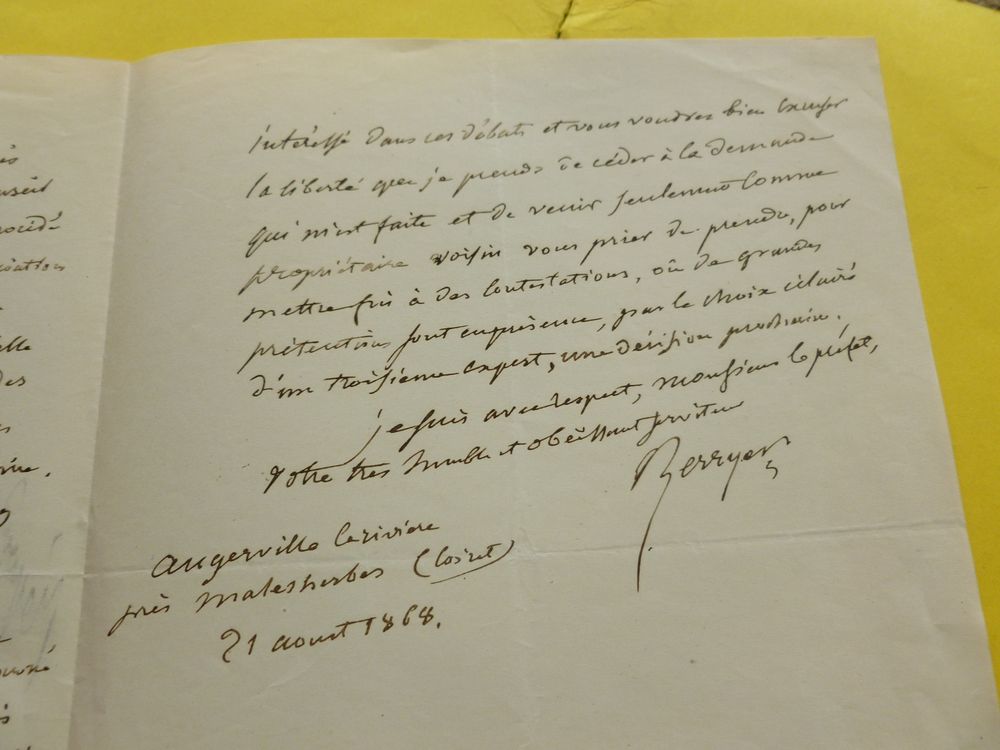 intéressé dans ces débats et vous voudrez bien excuser
la liberté que je prends de céder à la demande
qui m'est faite et de venir seulement comme
propriétaire voisin vous prier de prendre, pour
mettre fin à des contestations, où de grandes
prétentions sont en présence, par le choix éclairé
d'un troisieme expert, une décision prochaine.
je suis avec respect, monsieur le préfet,
votre tres humble et obéissant serviteur
Berryer
augerville la rivière
près malesherbes (Loiret)
21 aoust 1868.